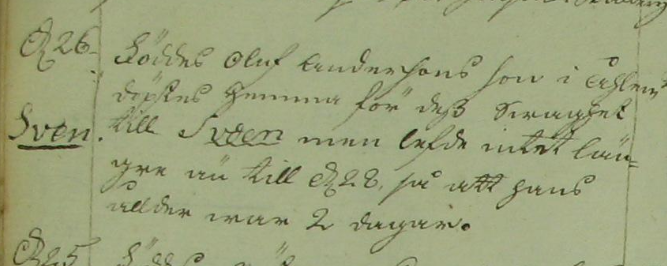 26. föddes Oluf Andersons son i
döptes hemma för dess swaghet
Sven. till Sven men lefde intet län=
gre än till 28, så att hans
ållder war 2 dagar.
25